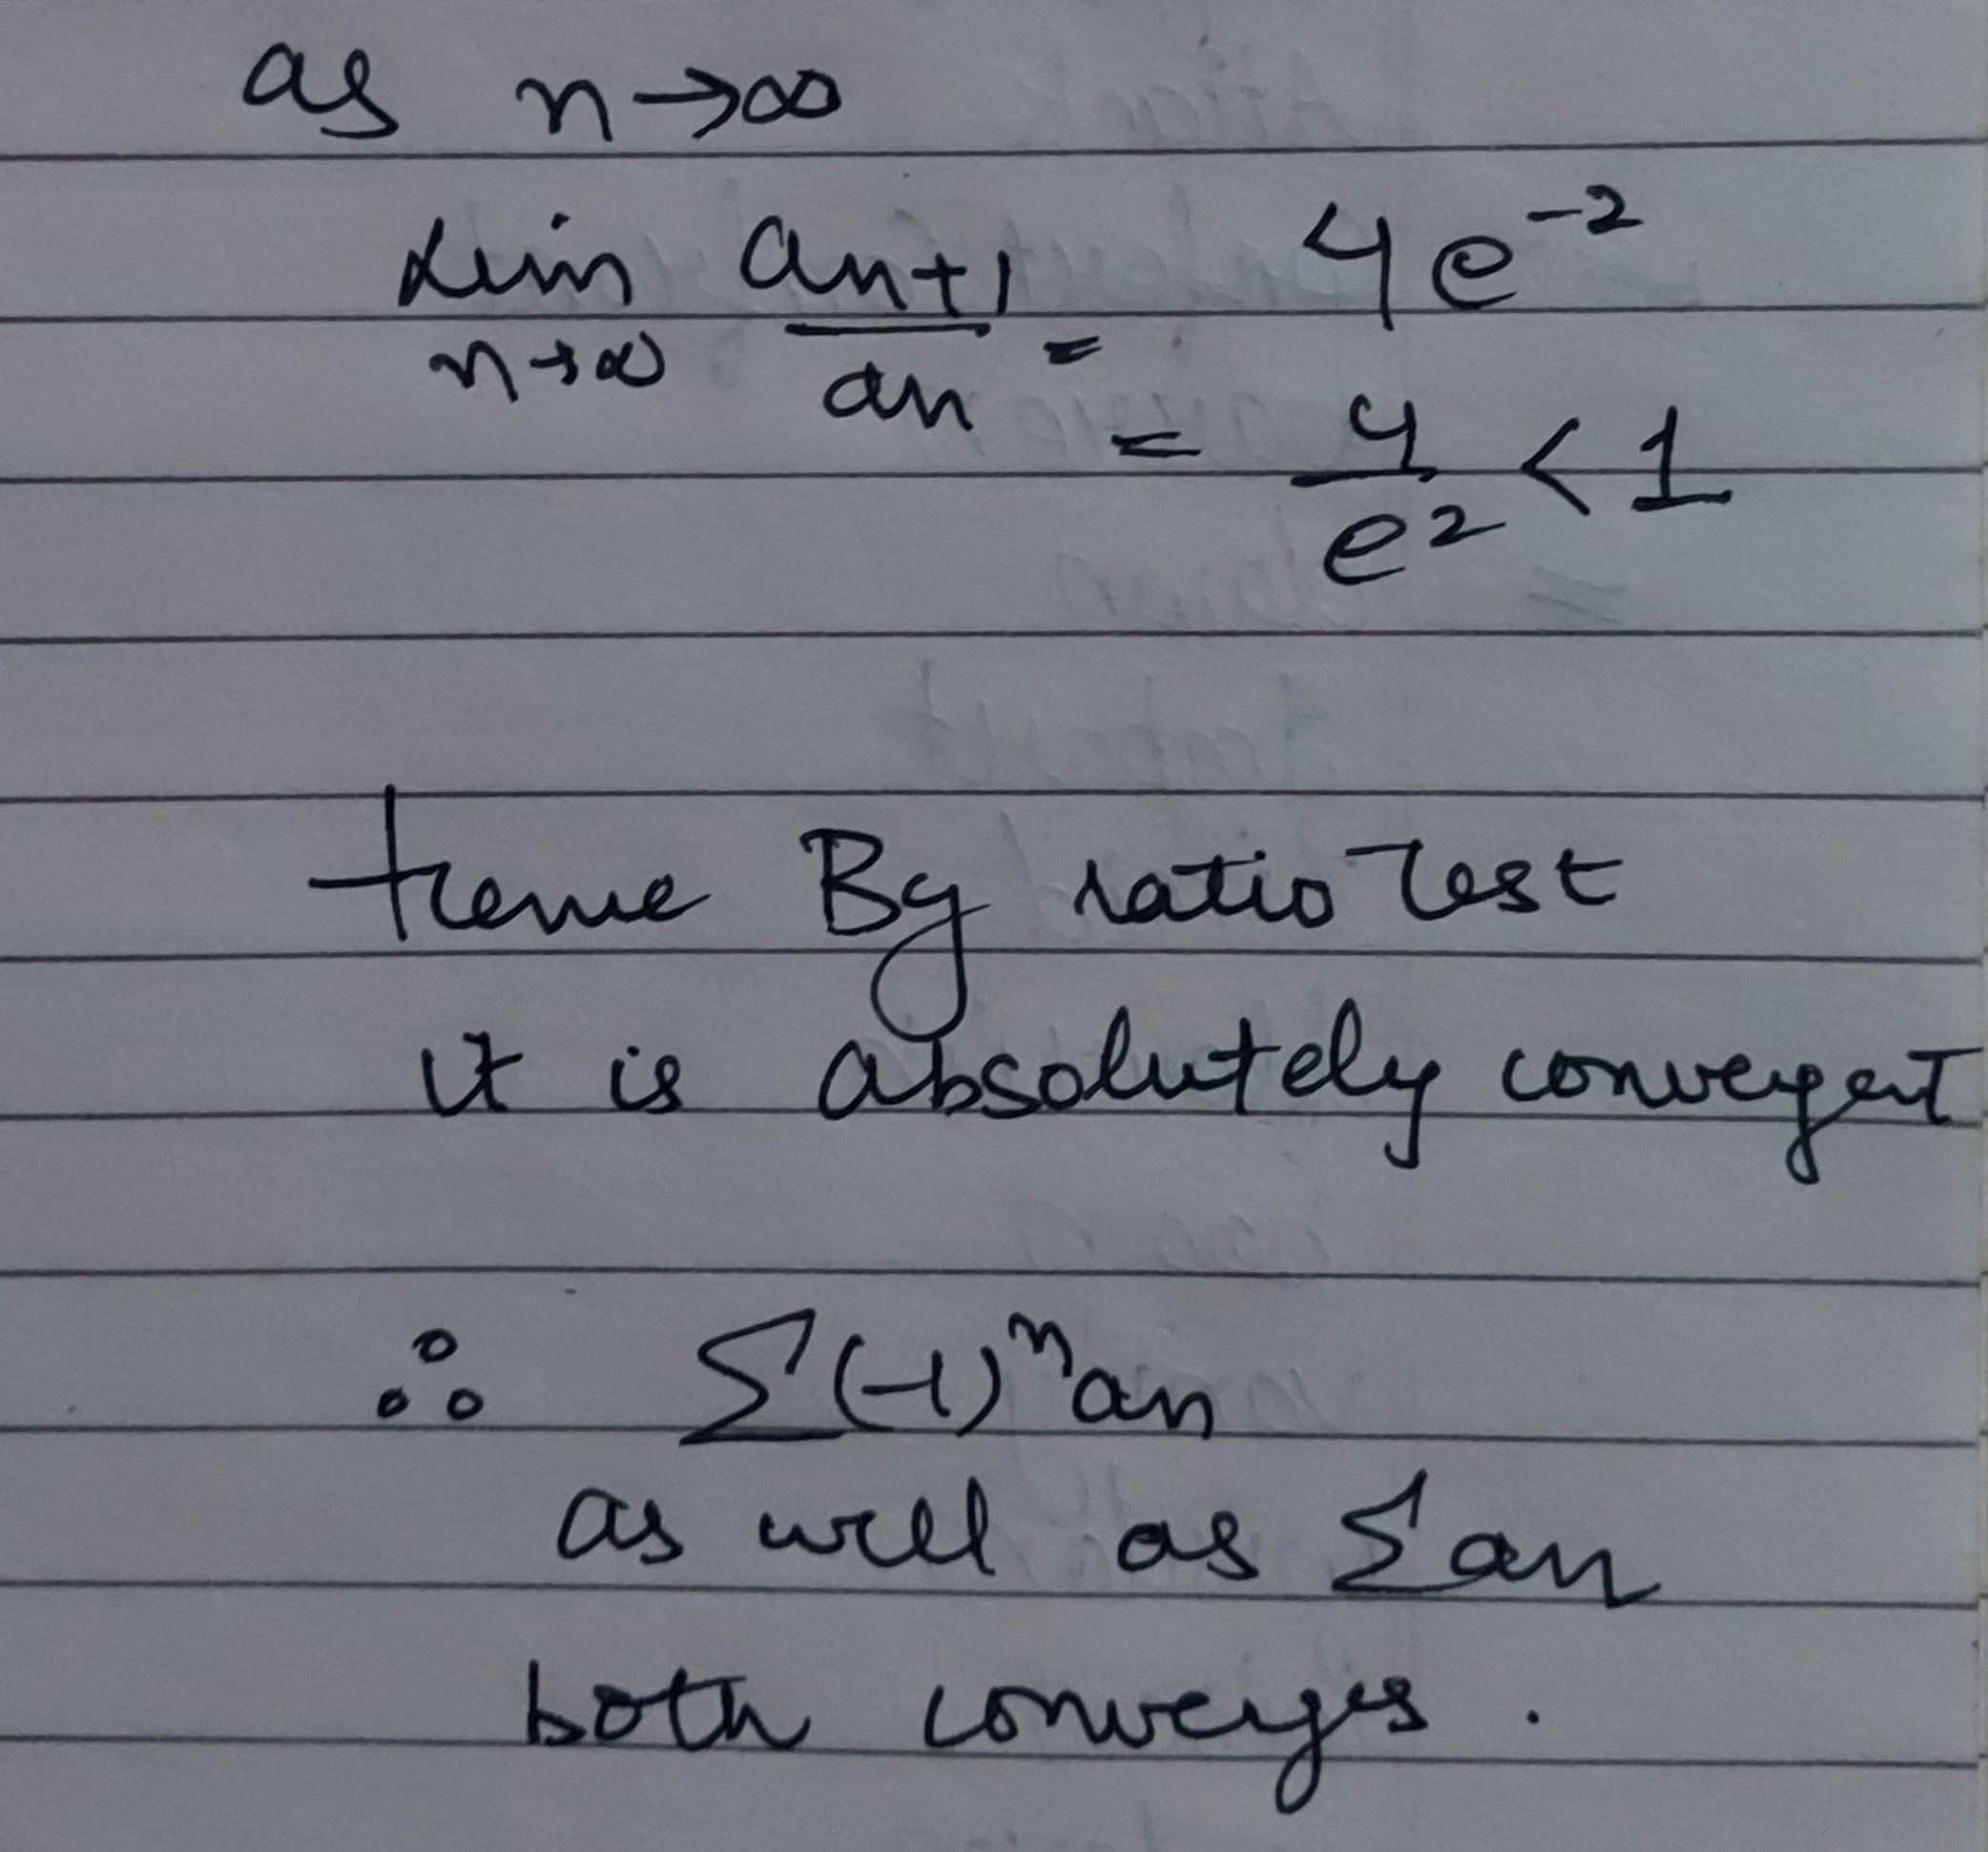 as n→∞
Lim n→∞ an+1/an = 4e⁻²
= 4/e² < 1
Hence By ratio Test
it is absolutely convergent
∴ Σ(-1)ⁿan
as well as Σan
both converges.